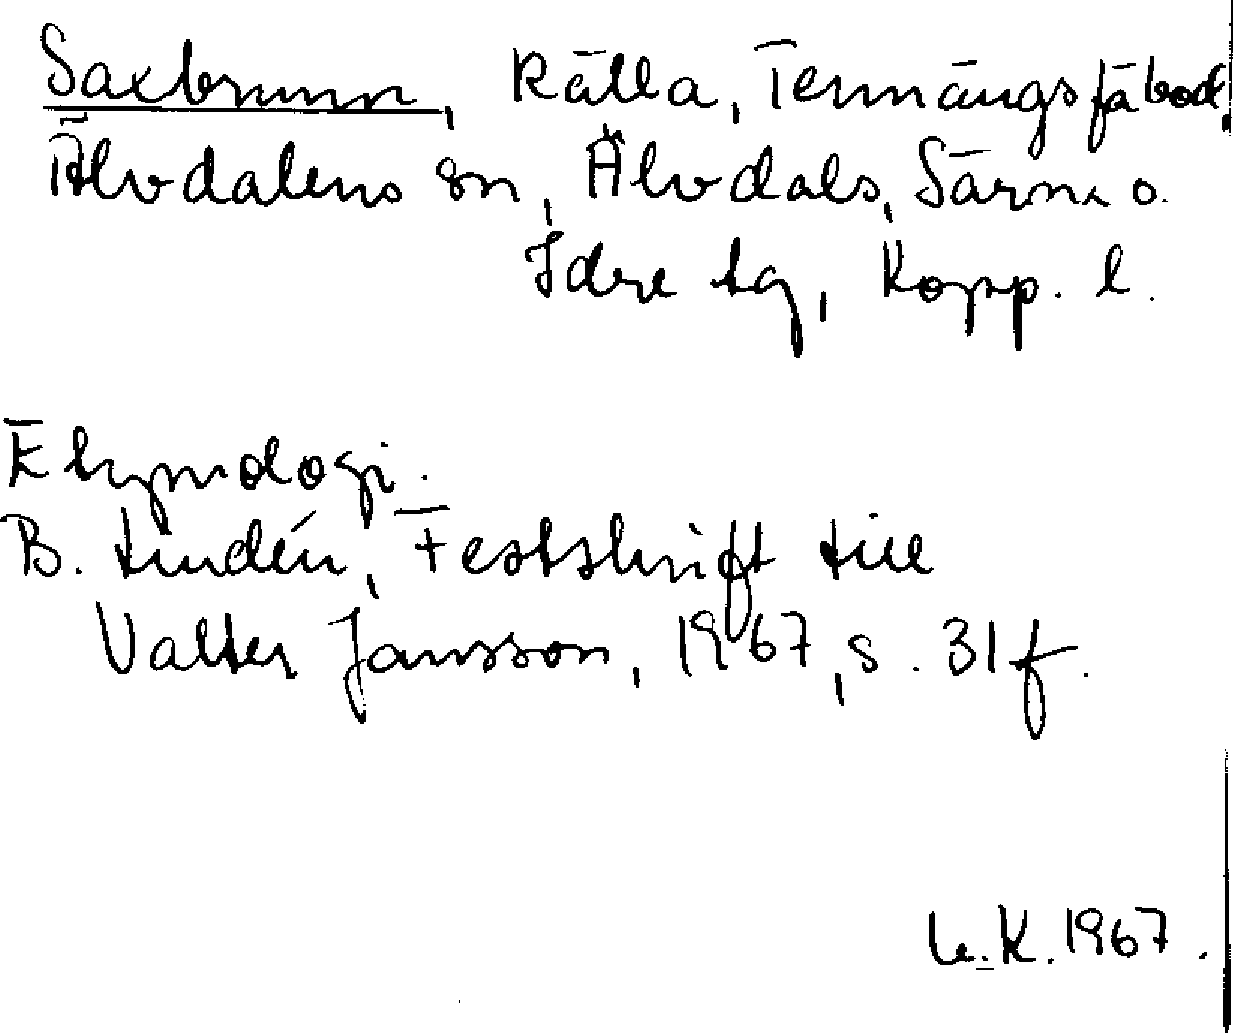 Saxbrunn, källa, Tennängsfäbod,
Älvdalens sn, Älvdals, Särna o.
Idre tg, Kopp. l.
Etymologi.
B. Lindén, Festskrift till
Valter Jansson, 1967, s. 31 f.
K. 1967.